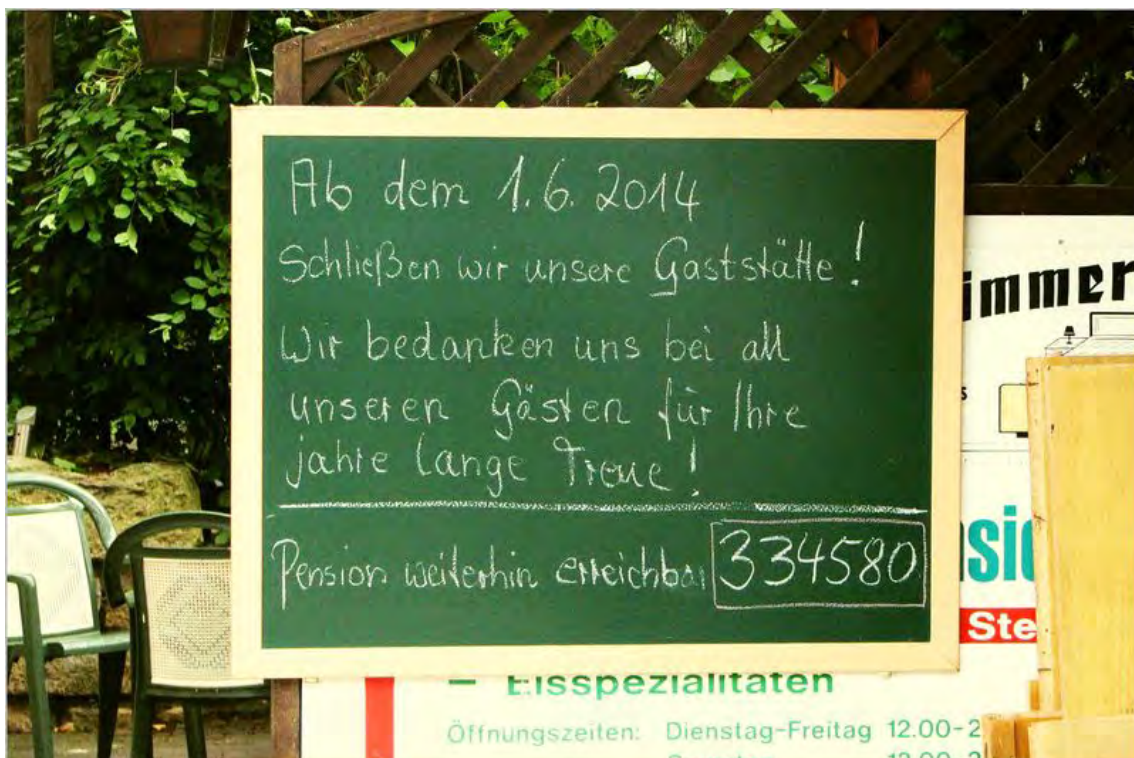 Ab dem 1.6. 2014
Schließen wir unsere Gaststätte!
Wir bedanken uns bei all
unseren Gästen für Ihre
jahre lange Treue!
Pension weiterhin erreichbar 334580
immer
nsio
Ste
- Eisspezialitäten
Öffnungszeiten: Dienstag-Freitag 12.00-2